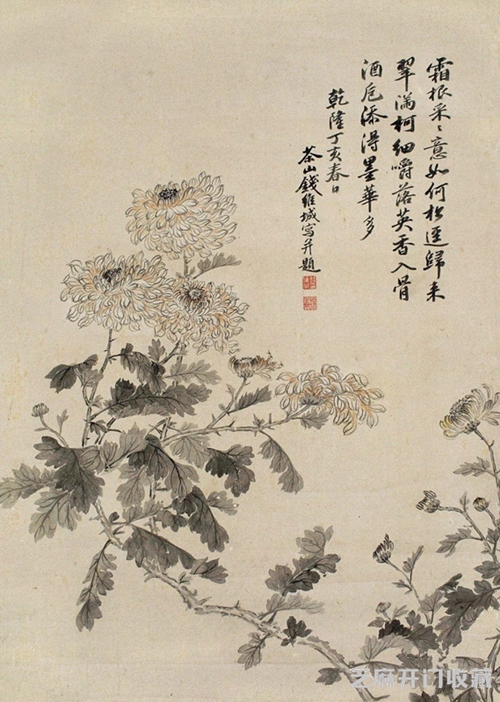 霜根采〻意如何松迳歸来
翠滿柯細嚼落英香入骨
酒巵添得墨華多
乾隆丁亥春日
茶山錢維城寫并題
芝麻开门收藏